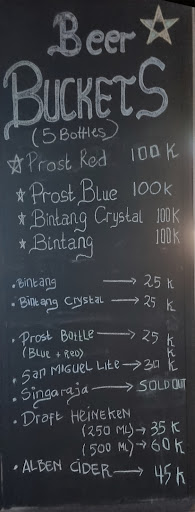 Beer
BUCKETS
(5 Bottles)
Prost Red 100 K
Prost Blue 100K
Bintang Crystal 100K
Bintang 100K
• Bintang → 25 K
• Bintang Crystal → 25 K
• Prost Bottle → 25 K
(Blue + Red) K
• San MIGUEL Lite → 30 K
• Singaraja → SOLD OUT
• Draft HEINEKEN
(250 ML) → 35 K
(500 ML) → 60 K
• ALBEN CIDER → 45 K